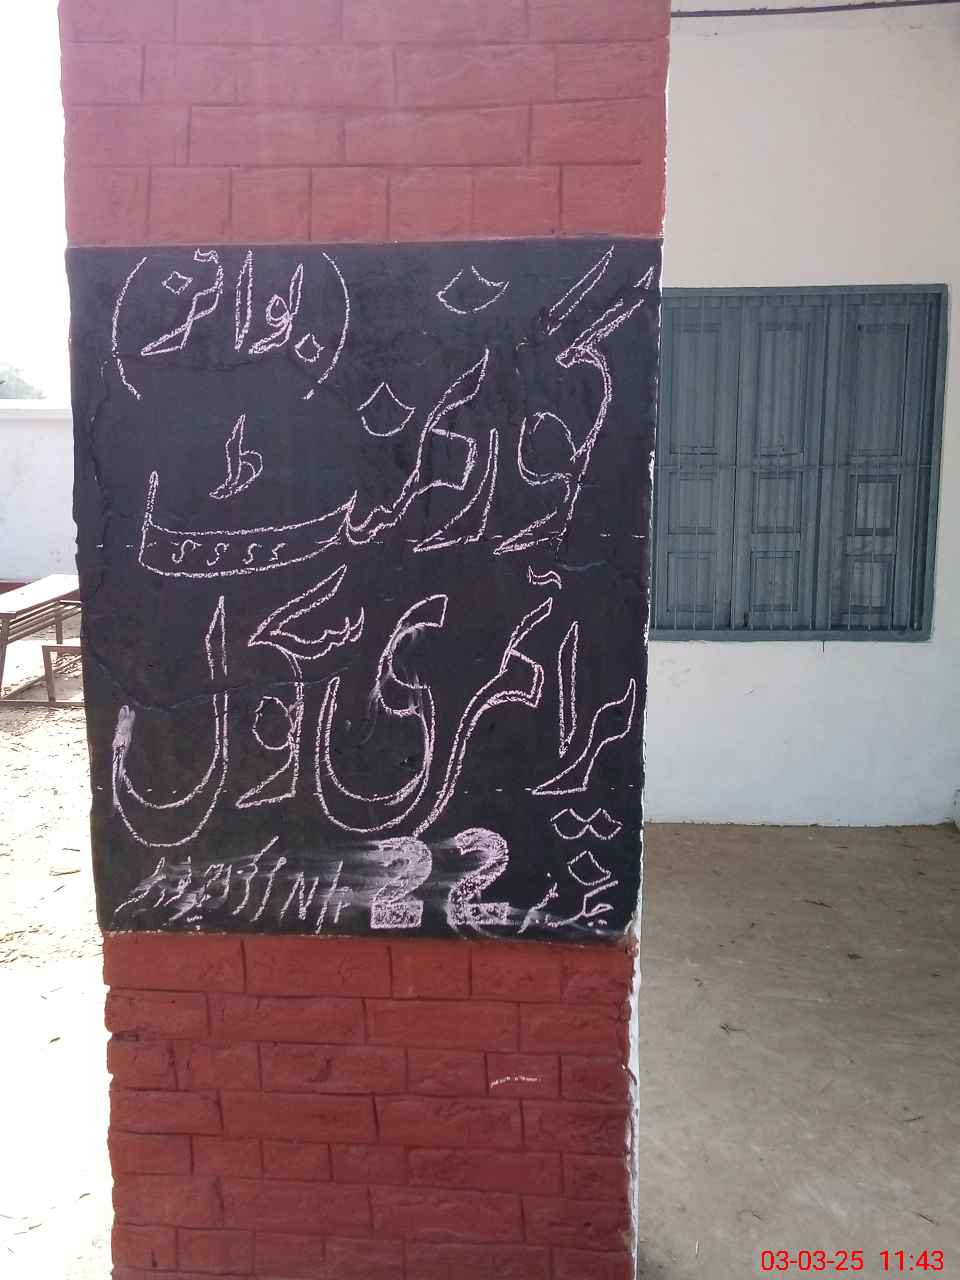 گورنمنٹ (بوائز)
پرائمری سکول
چک نمبر 22
03-03-25 11:43